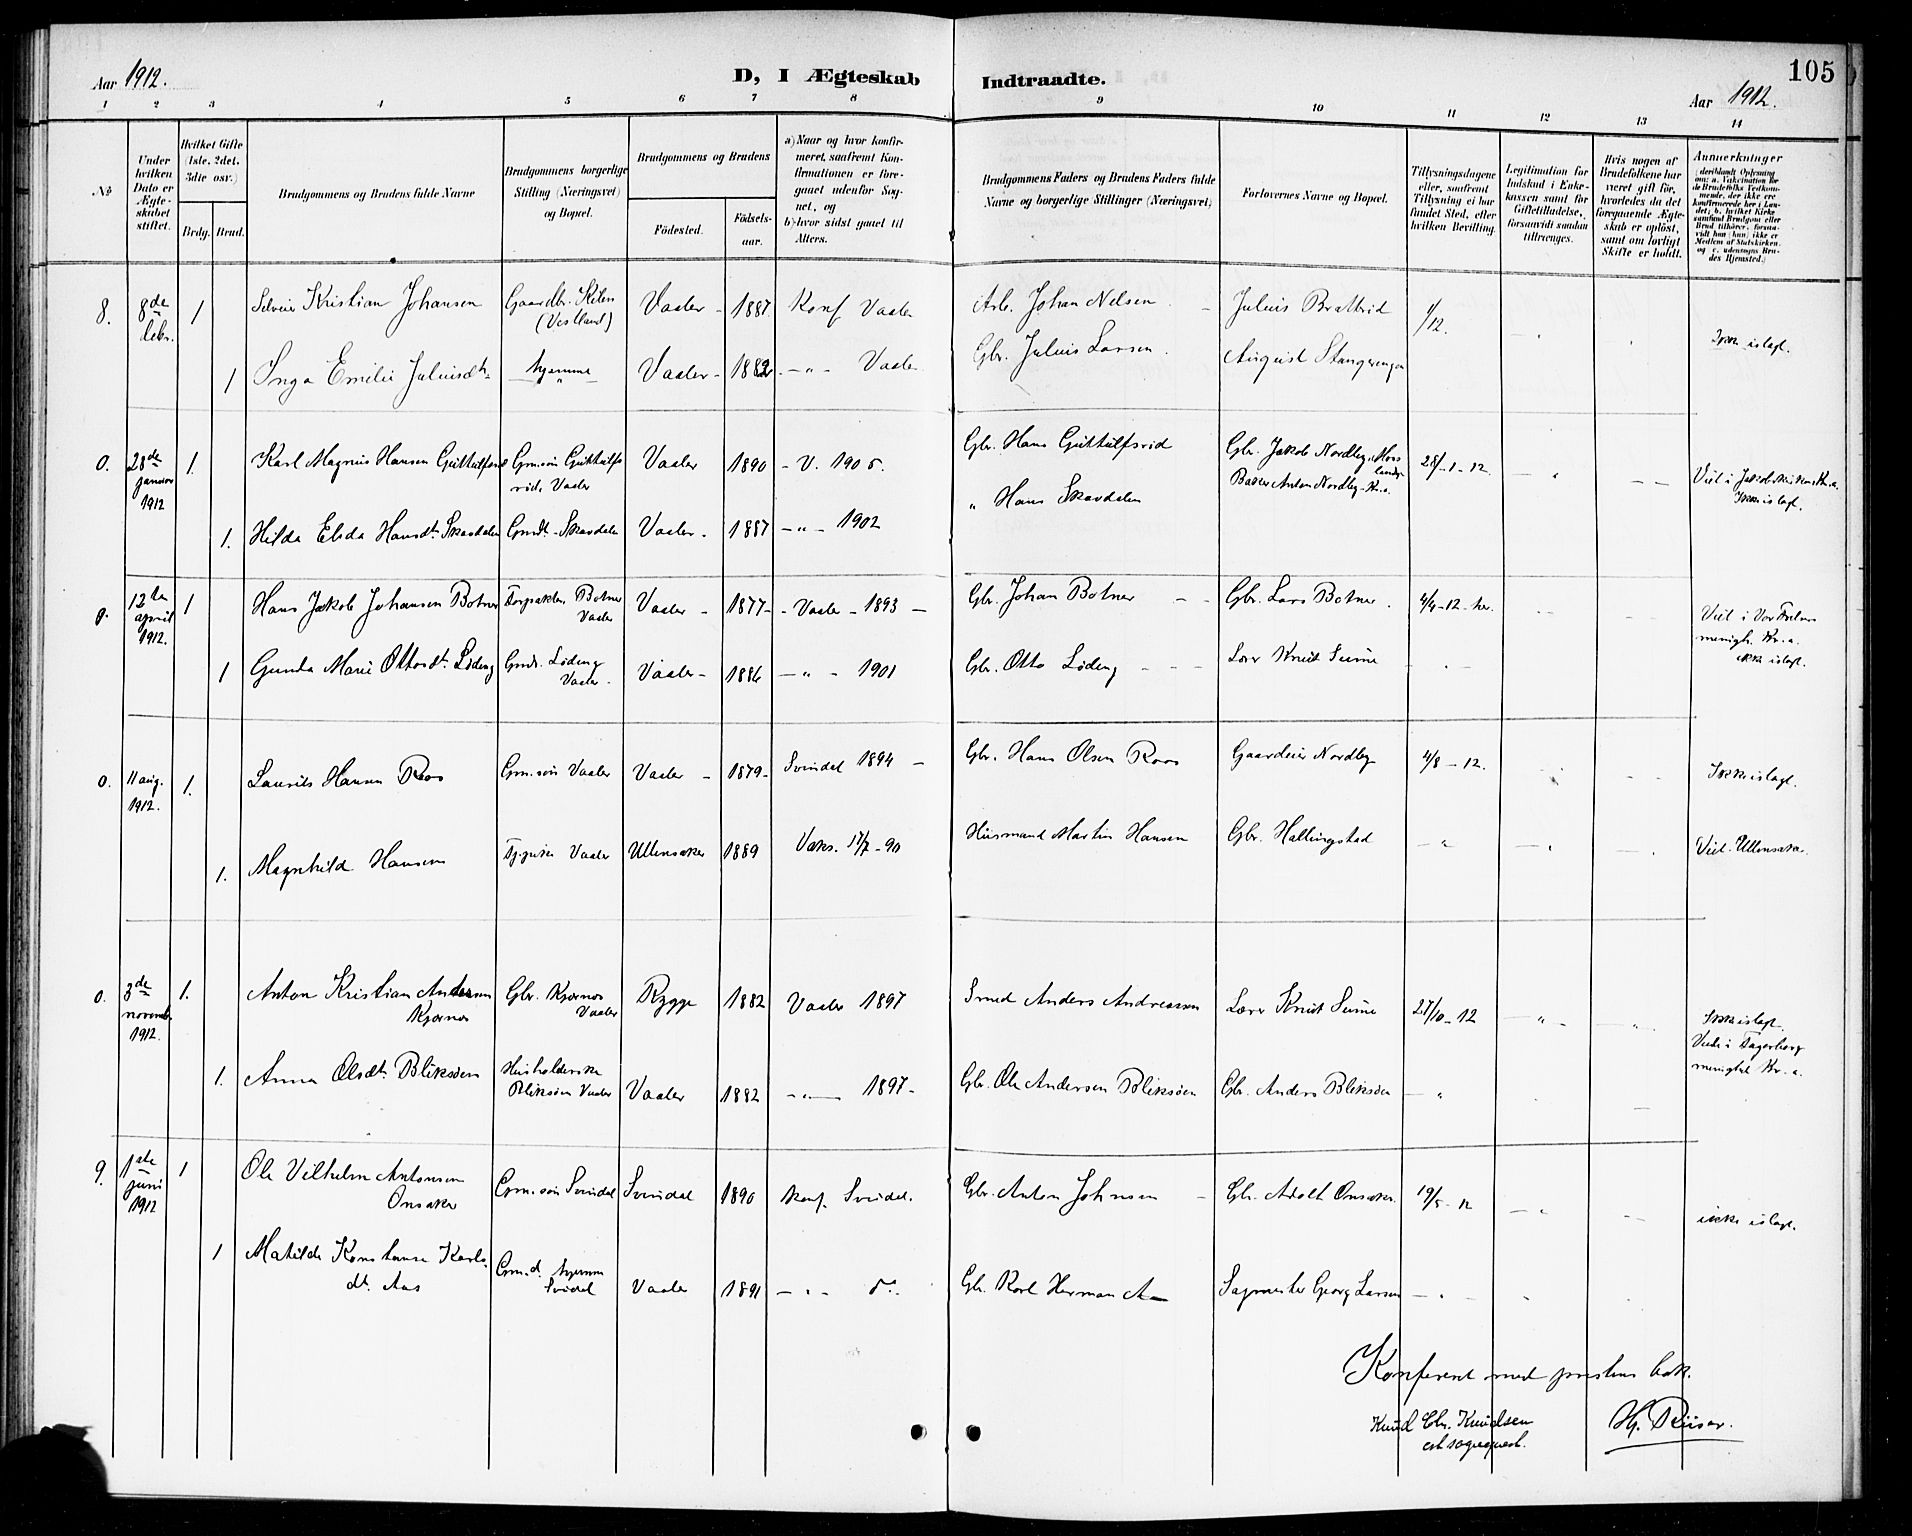 Aar 1912.
D, I Ægteskab
Indtraadte.
Aar 1912.
105
1 2 3 4 5 6 7 8 9 10 11 12 13 14
No
Under hvilken Dato er Ægteskabet stiftet.
Hvilket Gifte (1ste, 2det, 3die osv.)
Brdg. Brud.
Brudgommens og Brudens fulde Navne
Brudgommens borgerlige Stilling (Næringsvei) og Bopæl.
Brudgommens og Brudens
Fødested.
Fødselsaar.
a) Naar og hvor konfirmeret, saafremt Konfirmationen er foregaaet udenfor Sognet, og
b) hvor sidst gaaet til Alters.
Brudgommens Faders og Brudens Faders fulde Navne og borgerlige Stillinger (Næringsvei)
Forlovernes Navne og Bopæl.
Tillysningsdagene eller, saafremt Tillysning ei har fundet Sted, efter hvilken Bevilling.
Legitimation for Indskud i Enkekassen samt for Giftetilladelse, forsaavidt saadan tiltrænges.
Hvis nogen af Brudefolkene har været gift før, hvorledes da det foregaaende Ægteskab er opløst, samt om lovligt Skifte er holdt.
Anmerkninger
(deriblandt Oplysning om: a. Vakcination for de Brudefolks Vedkommende, der ikke ere konfirmerede her i Landet; b. hvilket Kirkesamfund Brudgom eller Brud tilhører, forsaavidt han (hun) ikke er Medlem af Statskirken, og c. udensogns Brudes Hjemsted.)
8. 8de febr. 1 Kristian Johansen Gaardbr. Kilen (Vestland) Vaaler - 1887 Konf Vaaler Arb. Johan Nelsen Julius Brattrid 1/12. Ikke islagt.
1 Inga Emilie Juliusdt. Hjemme Vaaler - 1882 - " - Vaaler Gbr. Julius Larsen August Stangerengen
0. 28de januar 1912 1. Karl Magnus Hansen Guttulfsrød Grm.søn Guttulfsrød, Vaaler Vaaler 1890 - V. 1905. Gbr. Hans Guttulfsrød Gbr. Jakob Nordby, Baker Anton Nordby - Kr.a. 28/-1-12. Viet i Jakobskirken Kr.a. Ikke islagt.
1. Hilda Elida Hansdt. Skavdalen Grmdt. Skavdalen Vaaler. 1887 - " - 1902 " Hans Skavdalen
0. 12te april 1912. 1 Hans Jakob Johansen Botner Forpakter, Botner Vaaler Vaaler - 1877 - - Vaaler - 1893 - Gbr. Johan Botner Gbr. Lars Botner. 4/4-12- her. Viet i Vor Frelsers menigh. Kr.a. ikke islagt.
1 Gunda Marie Ottosdt. Løding Grmdt. Løding Vaaler. Vaaler - 1886 - " - 1901 Gbr. Otto Løding Lærer Knut Sume
0. 11 aug. 1912. 1. Laurits Hansen Roos Grm.søn Vaaler Vaaler - 1879 - Svindal 1894 - Gbr. Hans Olsen Roos Gaardeier Nordby 4/8-12. Ikke islagt.
1. Magnhild Hansen Tj.pike Vaaler Ullensaker 1889 Vaks. 17/7-90 Husmand Martin Hansen Gbr. Hallingstad - " Viet. Ullensaker.
0. 3de novemb. 1912. 1. Anton Kristian Andersen Kjærnes Gbr. Kjærnes Vaaler Rygge 1882 Vaaler 1897 Smed Anders Andreassen Lærer Knut Sume 27/10-12 Ikke islagt. Viede i Fagerborg menighet Kr.a.
1. Anna Olsdt. Bliksøen Husholderske Bliksøen Vaaler Vaaler 1882 - " - 1897 - Gbr. Ole Andersen Bliksøen Gbr. Anders Bliksøen - "
9. 1ste juni 1912 1 Ole Vilhelm Antonsen Onsaker Grm.søn Svindal Svindal 1890 Konf. Svindal. Gbr. Anton Johnsen Gbr. Adolt Onsaker. 19/5-12 ikke islagt.
1 Matilde Konstanse Karlsdt. Aas Grm.d. hjemme Svindal Vaaler 1891 - " - do. Gbr. Karl Herman Aas Sagmester Georg Larsen - "
Konferert med prestens bok.
Knud Chr. Knudsen
est sogneprest.
Hj. Riiser.